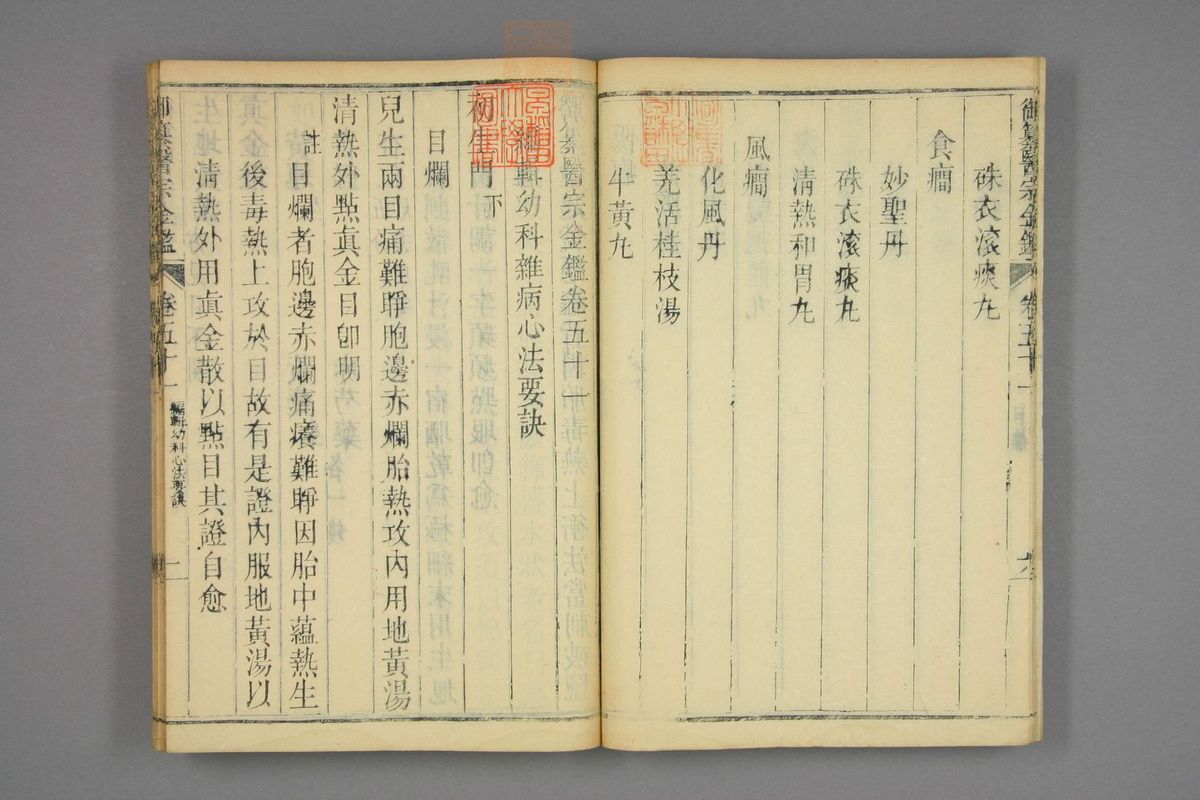 御纂醫宗金鑑 卷五十一
硃衣滾痰丸
食癇
妙聖丹
硃衣滾痰丸
清熱和胃丸
風癇
化風丹
羌活桂枝湯
牛黃丸
御纂醫宗金鑑卷五十一
編輯幼科雜病心法要訣
初生門下
目爛
兒生兩目痛難睜胞邊赤爛胎熱攻內用地黃湯
清熱外點眞金目卽明
註目爛者胞邊赤爛痛癢難睜因胎中蘊熱生
後毒熱上攻於目故有是證內服地黃湯以
清熱外用眞金散以點目其證自愈
御纂醫宗金鑑 卷五十一 編輯幼科心法要訣 一